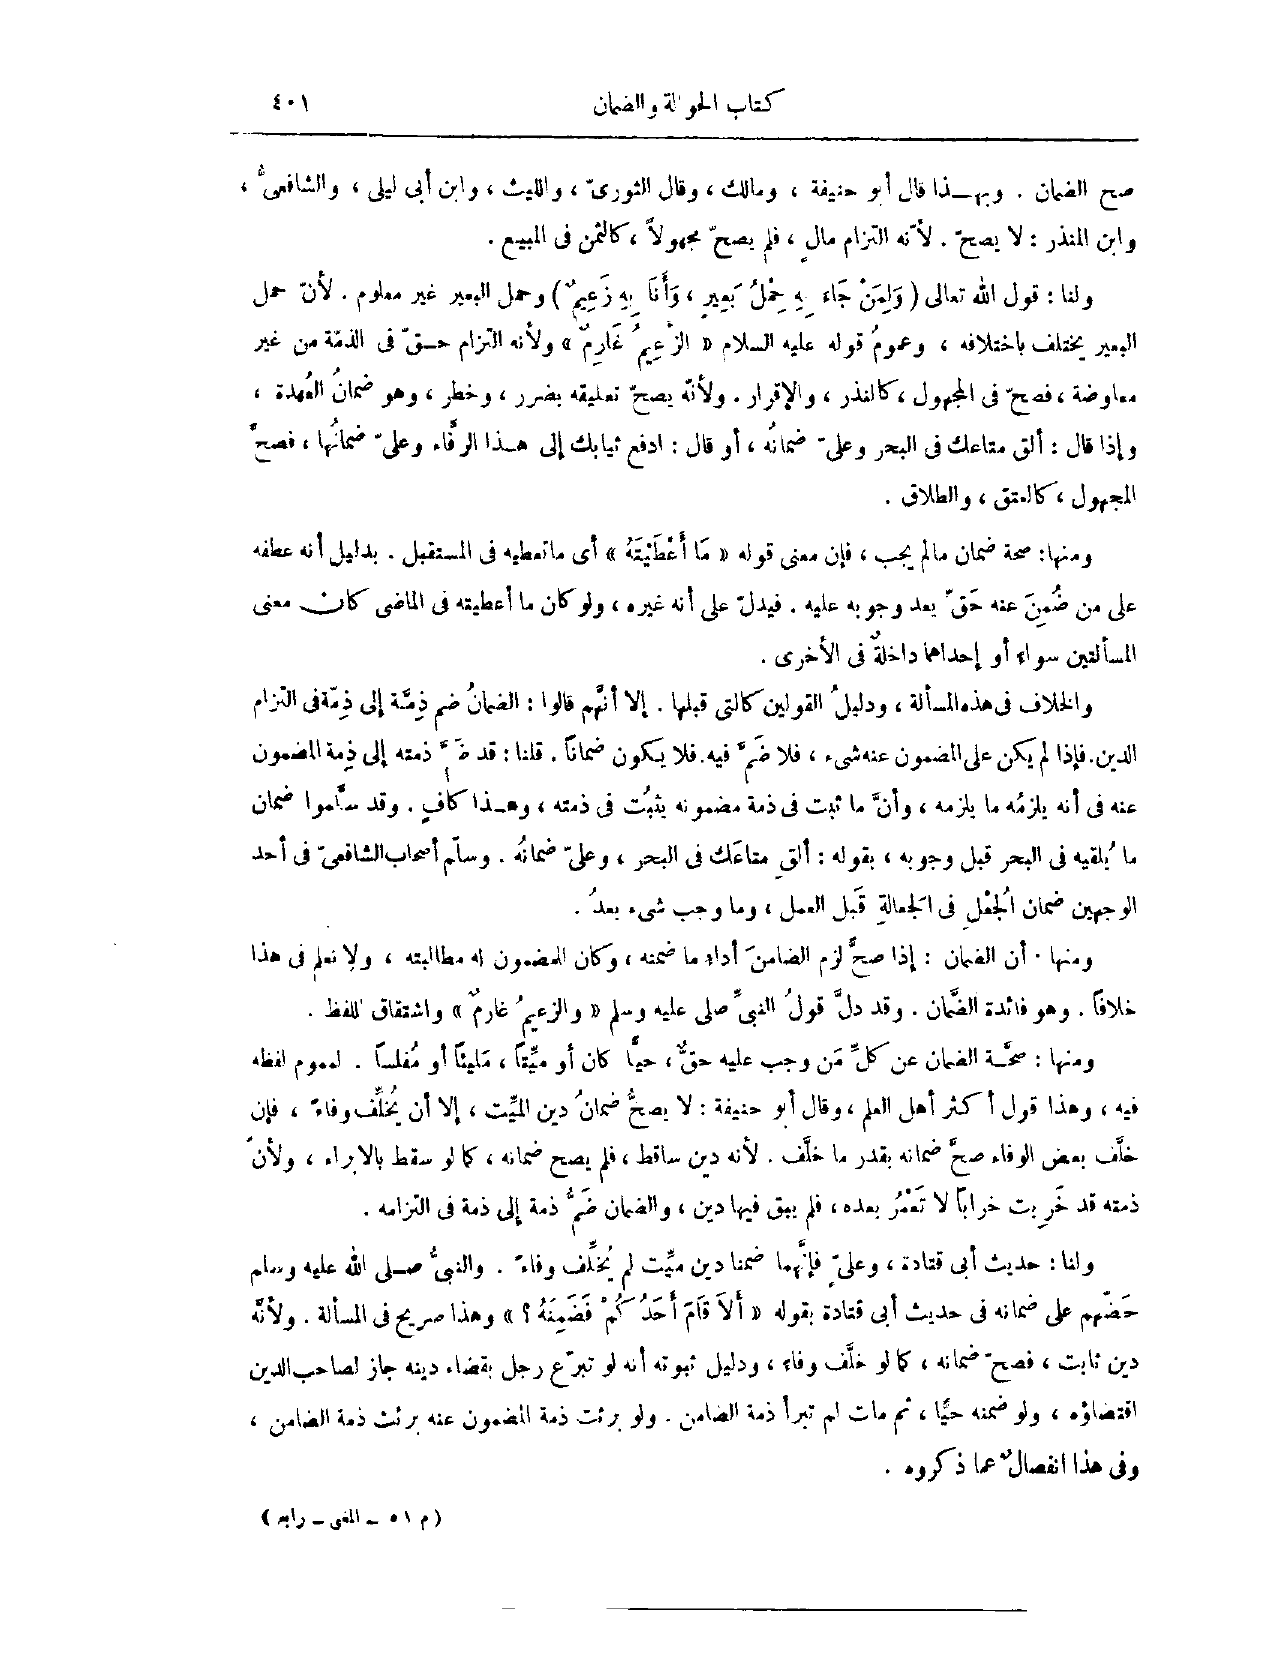 كتاب الحوالة والضمان ٤٠١
صح الضمان . وبهــذا قال أبو حنيفة ، ومالك ، وقال الثورىّ ، والليث ، وابن أبى ليلى ، والشافعىُّ ،
وابن المنذر : لا يصحّ . لأنه التزام مالٍ ، فلم يصحّ مجهولاً ، كالثمن فى المبيع .
ولنا : قول الله تعالى ( وَلِمَنْ جَاءَ بِهِ حِمْلُ بَعِيرٍ ، وَأَنَا بِهِ زَعِيمٌ ) وحمل البعير غير معلوم . لأنّ حمل
البعير يختلف باختلافه ، وعمومُ قوله عليه السلام « الزَّعِيمُ غَارِمٌ » ولأنه التزام حــقّ فى الذمّة من غير
معاوضة ، فصحّ فى المجهول ، كالنذر ، والإقرار . ولأنّه يصحّ تعليقه بضرر ، وخطر ، وهو ضمانُ العُهدة ،
وإذا قال : ألق متاعك فى البحر وعلىّ ضمانُه ، أو قال : ادفع ثيابك إلى هــذا الرفَّاء وعلىّ ضمانُها ، فصحَّ
المجهول ، كالعتق ، والطلاق .
ومنها : صحة ضمان مالم يجب ، فإن معنى قوله « مَا أَعْطَيْتَهُ » أى ماتعطيه فى المستقبل . بدليل أنه عطفه
على من ضُمِنَ عنه حَقّ بعد وجوبه عليه . فيدلّ على أنه غيره ، ولو كان ما أعطيته فى الماضى كان معنى
المسألتين سواء أو إحداهما داخلةٌ فى الأخرى .
والخلاف فى هذه المسألة ، ودليلُ القولين كالتى قبلها . إلا أنَّهم قالوا : الضمانُ ضم ذِمَّة إلى ذِمّة فى التزام
الدين . فإذا لم يكن على المضمون عنه شىء ، فلا ضَمَّ فيه . فلا يكون ضماناً . قلنا : قد ضَمَّ ذمته إلى ذِمة المضمون
عنه فى أنه يلزمُه ما يلزمه ، وأنَّ ما ثبت فى ذمة مضمونه يثبُت فى ذمته ، وهــذا كافٍ . وقد سلَّموا ضمان
ما يُلقيه فى البحر قبل وجوبه ، بقوله : ألقِ متاعَك فى البحر ، وعلىّ ضمانُه . وسلّم أصحاب الشافعىّ فى أحد
الوجهين ضمان الُجعْلِ فى الَجعالةِ قَبل العمل ، وما وجب شىء بعدُ .
ومنها . أن الضمان : إذا صحَّ لزم الضامنَ أداء ما ضمنه ، وكان للمضمون له مطالبته ، ولا نعلم فى هذا
خلافاً . وهو فائدة الضَّمان . وقد دلَّ قولُ النبىِّ صلى عليه وسلم « والزعيمُ غارمٌ » واشتقاق اللفظ .
ومنها : صحَّـة الضمان عن كلِّ مَن وجب عليه حقٌّ ، حيًّا كان أو ميِّتاً ، مَليئاً أو مُفلساً . لعموم لفظه
فيه ، وهذا قول أكثر أهل العلم ، وقال أبو حنيفة : لا يصحُّ ضمانُ دين الميِّت ، إلا أن يُخلِّف وفاءً ، فإن
خلَّف بعض الوفاء صحَّ ضمانه بقدر ما خلَّف . لأنه دين ساقط ، فلم يصح ضمانه ، كما لو سقط بالابراء ، ولأن
ذمته قد خَرِبت خراباً لا تَعْمُرُ بعده ، فلم يبق فيها دين ، والضمان ضَمُّ ذمة إلى ذمة فى التزامه .
ولنا : حديث أبى قتادة ، وعلىّ فإنَّهما ضمنا دين ميِّت لم يُخلِّف وفاءً . والنبىُّ صــلى الله عليه وسلم
حَضَّهم على ضمانه فى حديث أبى قتادة بقوله « أَلاَ قَامَ أَحَدُ كُمْ فَضَمِنَهُ ؟ » وهذا صريح فى المسألة . ولأنَّه
دين ثابت ، فصحّ ضمانه ، كما لو خلَّف وفاء ، ودليل ثبوته أنه لو تبرّع رجل بقضاء دينه جاز لصاحب الدين
اقتضاؤه ، ولو ضمنه حيًّا ، ثم مات لم تبرأ ذمة الضامن . ولو برئت ذمة المضمون عنه برئت ذمة الضامن ،
وفى هذا انفصالٌ عما ذكروه .
( م ٥١ ــ المغنى ــ رابع )